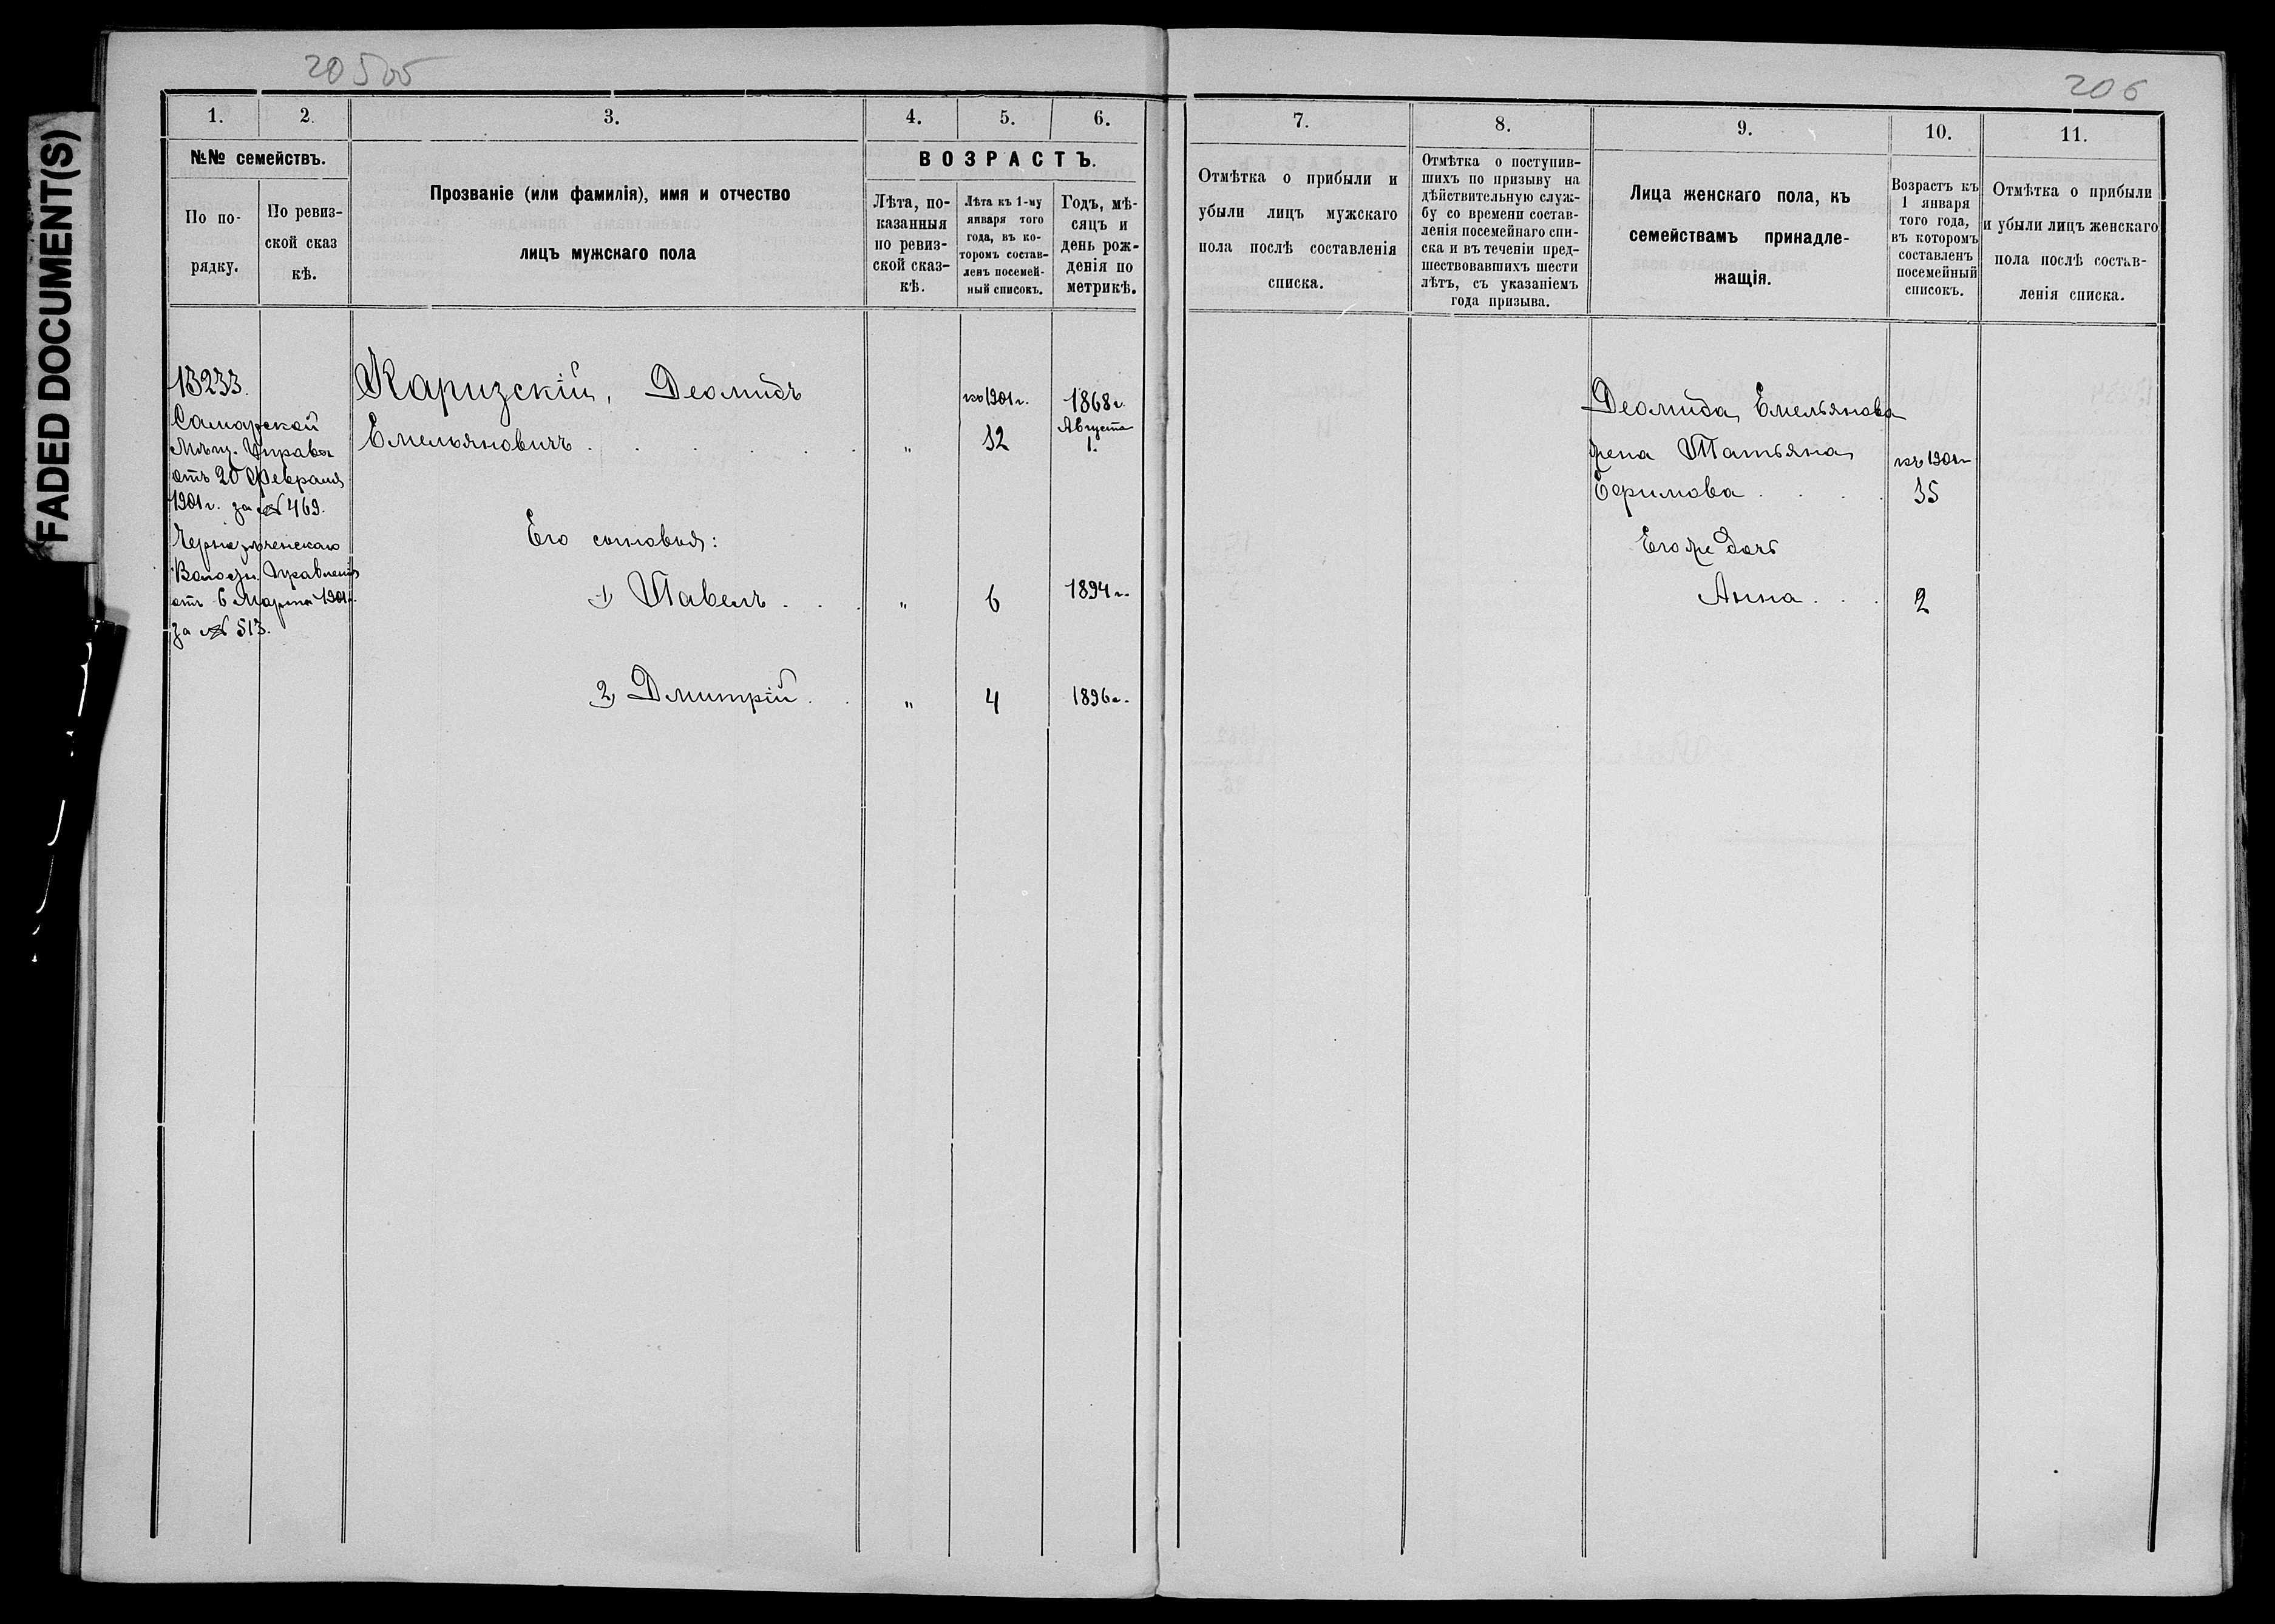 20505
206
FADED DOCUMENT(S)
1.
2.
3.
4.
5.
6.
№№ семействъ.
По по-
рядку.
По ревиз-
ской сказ
кѣ.
Прозваніе (или фамилія), имя и отчество
лицъ мужскаго пола
ВОЗРАСТЪ.
Лѣта, по-
казанныя
по ревиз-
ской сказ-
кѣ.
Лѣта къ 1-му
января того
года, въ ко-
торомъ состав-
ленъ посемей-
ный списокъ.
Годъ, мѣ-
сяцъ и
день рож-
денія по
метрикѣ.
13233.
Самарской
Мѣщ. Управы
отъ 20 Февраля
1901 г. за № 469.
Чернорѣченскаго
Волостн. Правленія
отъ 6 Марта 1901 г.
за № 513.
Каризскій, Деомидъ
Емельяновичъ . . . . . .
"
къ 1901 г.
32
1868 г.
Августа
1.
Его сыновья:
1) Павелъ . . . " 6 1894 г.
2) Дмитрій . . " 4 1896 г.
7.
8.
9.
10.
11.
Отмѣтка о прибыли и
убыли лицъ мужскаго
пола послѣ составленія
списка.
Отмѣтка о поступив-
шихъ по призыву на
дѣйствительную служ-
бу со времени состав-
ленія посемейнаго спи-
ска и въ теченіи пред-
шествовавшихъ шести
лѣтъ, съ указаніемъ
года призыва.
Лица женскаго пола, къ
семействамъ принадле-
жащія.
Возрастъ къ
1 января
того года,
въ которомъ
составленъ
посемейный
списокъ.
Отмѣтка о прибыли
и убыли лицъ женскаго
пола послѣ состав-
ленія списка.
Деомида Емельянова
жена Татьяна
Ефимова . . . .
къ 1901 г.
35
Его же дочь
Анна . . . 2